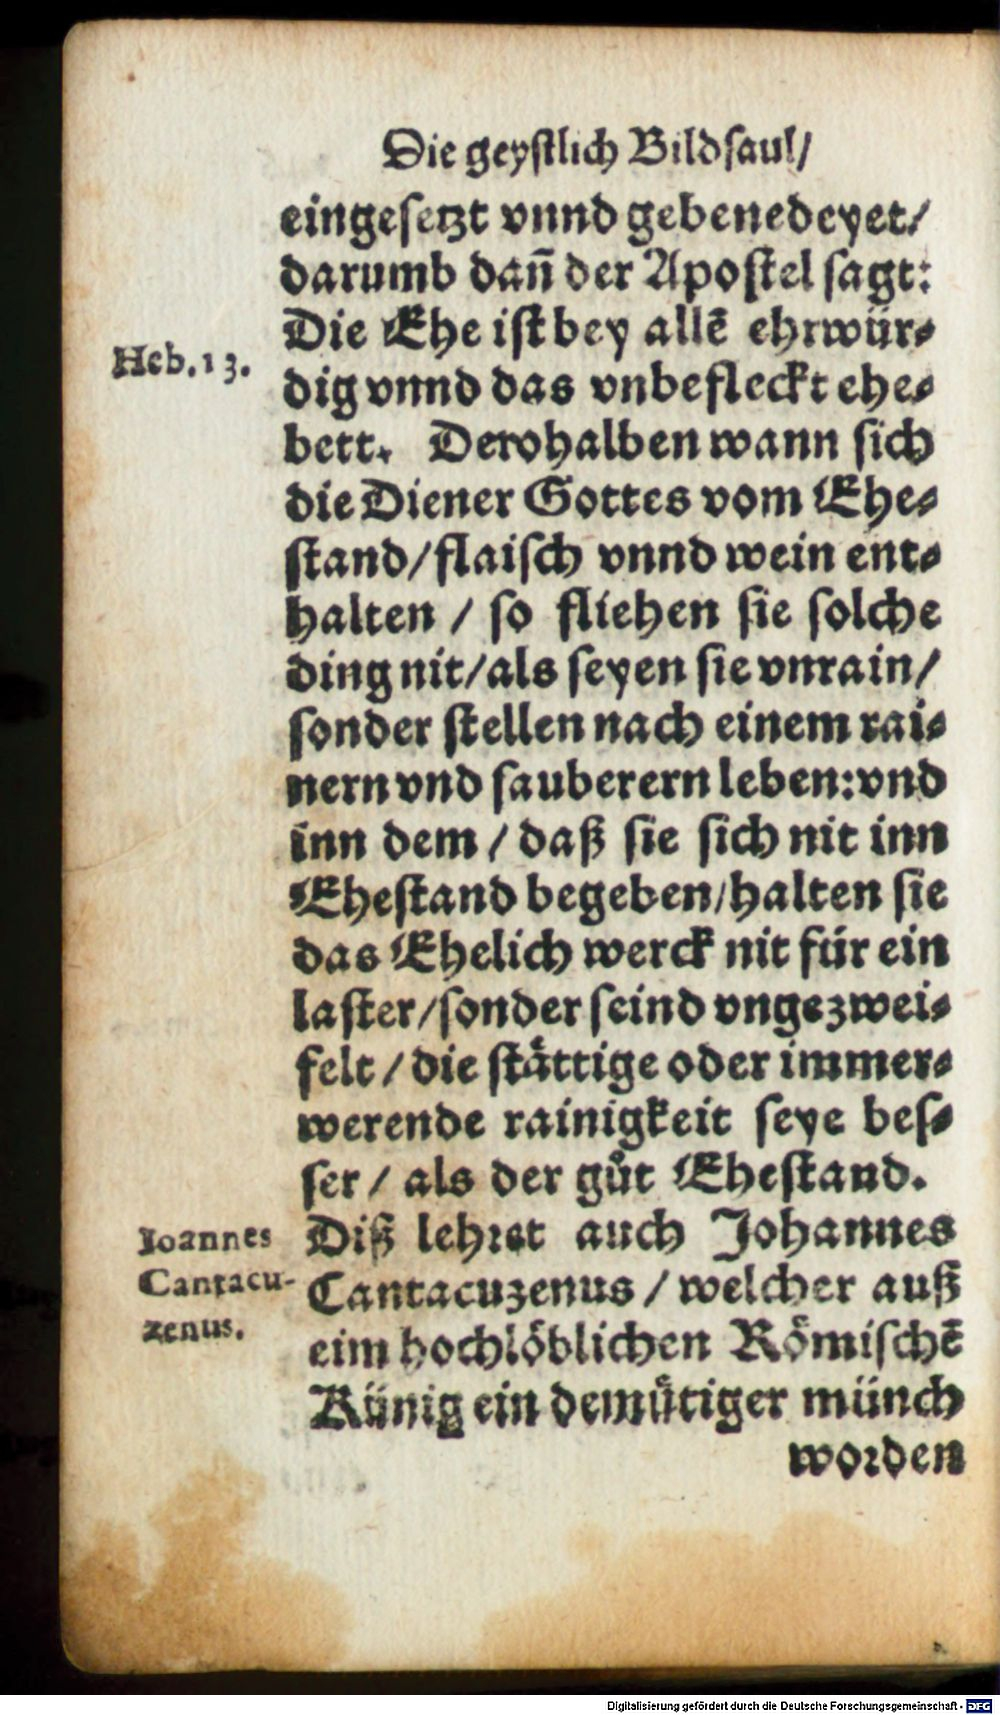 Die geystlich Bildsaul/
eingesetzt vnnd gebenedeyet/
darumb dañ der Apostel sagt:
Die Ehe ist bey allẽ ehrwür-
Heb. 13.
dig vnnd das vnbefleckt ehe-
bett. Derohalben wann sich
die Diener Gottes vom Ehe-
stand/flaisch vnnd wein ent-
halten / so fliehen sie solche
ding nit/als seyen sie vnrain/
sonder stellen nach einem rai-
nern vnd sauberern leben:vnd
inn dem / daß sie sich nit inn
Ehestand begeben/halten sie
das Ehelich werck nit für ein
laster/sonder seind vngezwei-
felt / die stättige oder immer-
werende rainigkeit seye bes-
ser / als der gůt Ehestand.
Diß lehret auch Johannes
Ioannes
Cantacuzenus / welcher auß
Cantacu-
eim hochlöblichen Römischẽ
zenus.
Künig ein demütiger münch
worden
Digitalisierung gefördert durch die Deutsche Forschungsgemeinschaft - DFG